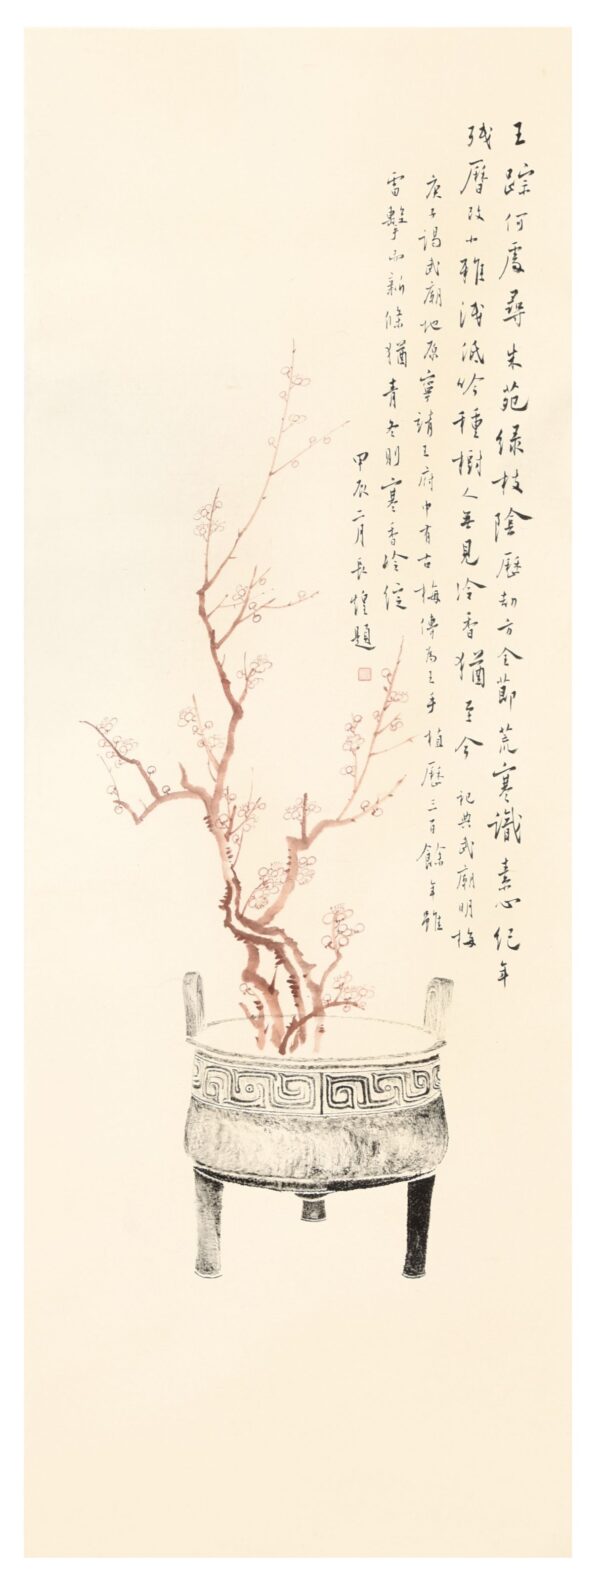 王踪何處尋朱苑綠枝陰歷劫方全節荒寒識素心紀年
残曆改小雅淺低吟種樹人無見冷香猶至今祀典武廟明梅
庚子謁武廟地原寧靖王府中有古梅傳為王手植歷三百餘年雖
雷擊而新條猶青冬則寒香冷綻
甲辰二月長煌題